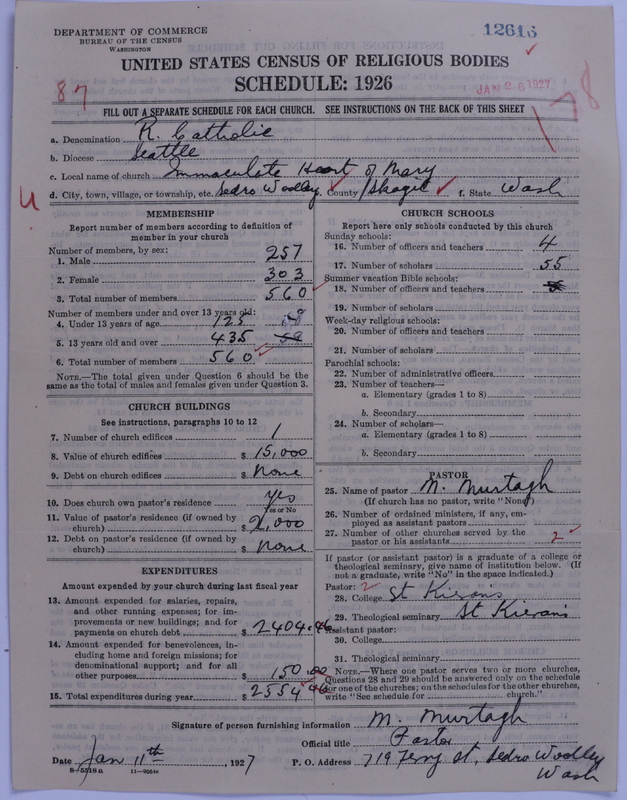 DEPARTMENT OF COMMERCE
BUREAU OF THE CENSUS
WASHINGTON
12616
UNITED STATES CENSUS OF RELIGIOUS BODIES
SCHEDULE: 1926
JAN 26 1927
87
178
FILL OUT A SEPARATE SCHEDULE FOR EACH CHURCH. SEE INSTRUCTIONS ON THE BACK OF THIS SHEET
a. Denomination R. Catholic
b. Diocese Seattle
c. Local name of church Immaculate Heart of Mary
d. City, town, village, or township, etc. Sedro Woolley County Skagit f. State Wash
U
MEMBERSHIP
Report number of members according to definition of
member in your church
Number of members, by sex:
1. Male 257
2. Female 303
3. Total number of members 560
Number of members under and over 13 years old:
4. Under 13 years of age 125
5. 13 years old and over 435
6. Total number of members 560
NOTE.—The total given under Question 6 should be the
same as the total of males and females given under Question 3.
CHURCH BUILDINGS
See instructions, paragraphs 10 to 12
7. Number of church edifices 1
8. Value of church edifices $ 15,000
9. Debt on church edifices $ None
10. Does church own pastor's residence yes
Yes or No
11. Value of pastor's residence (if owned by
church) $ 2,000
12. Debt on pastor's residence (if owned by
church) $ None
EXPENDITURES
Amount expended by your church during last fiscal year
13. Amount expended for salaries, repairs,
and other running expenses; for im-
provements or new buildings; and for
payments on church debt $ 2404.46
14. Amount expended for benevolences, in-
cluding home and foreign missions; for
denominational support; and for all
other purposes $ 150.00
15. Total expenditures during year $ 2554.46
CHURCH SCHOOLS
Report here only schools conducted by this church
Sunday schools:
16. Number of officers and teachers 4
17. Number of scholars 55
Summer vacation Bible schools:
18. Number of officers and teachers
19. Number of scholars
Week-day religious schools:
20. Number of officers and teachers
21. Number of scholars
Parochial schools:
22. Number of administrative officers
23. Number of teachers—
a. Elementary (grades 1 to 8)
b. Secondary
24. Number of scholars—
a. Elementary (grades 1 to 8)
b. Secondary
PASTOR
25. Name of pastor M. Murtagh
(If church has no pastor, write "None")
26. Number of ordained ministers, if any, em-
ployed as assistant pastors
27. Number of other churches served by the
pastor or his assistants 2
If pastor (or assistant pastor) is a graduate of a college or
theological seminary, give name of institution below. (If
not a graduate, write "No" in the space indicated.)
Pastor: 2
28. College St Kierans
29. Theological seminary St Kierans
Assistant pastor:
30. College
31. Theological seminary
NOTE.—Where one pastor serves two or more churches,
Questions 28 and 29 should be answered only on the schedule
for one of the churches; on the schedules for the other churches,
write "See schedule for church."
Signature of person furnishing information M. Murtagh
Official title Pastor
Date Jan 11th, 1927 P. O. Address 719 Ferry St, Sedro Woolley
Wash
8—5518 B 11—9054a